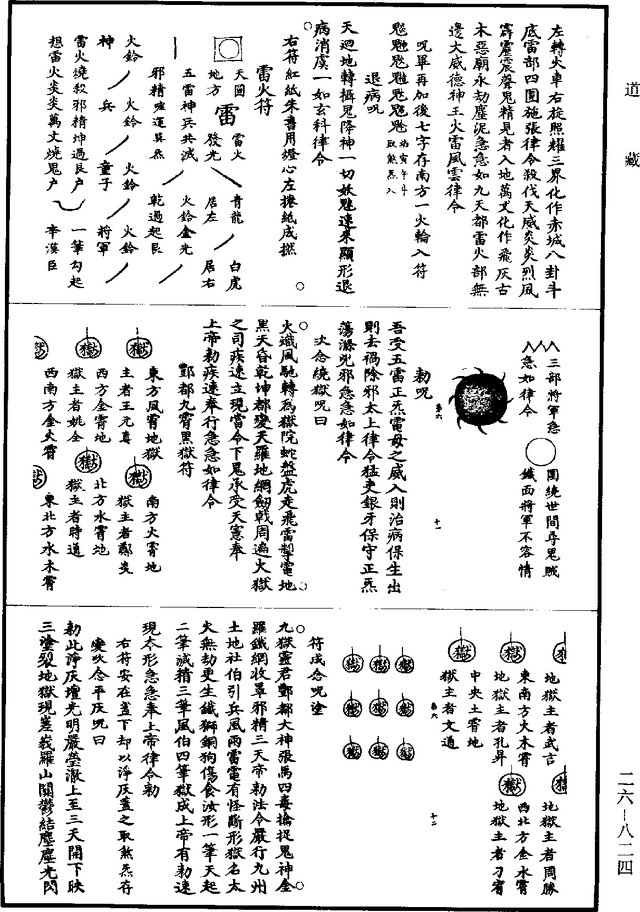 道藏
左轉火車右旋照耀三界化作赤城八卦斗
底雷部四圍施張律令殺伐天威炎炎烈風
霹靂震聲鬼精見者入地萬丈化作飛灰古
木惡廟永劫塵泥急急如九天都雷火部無
邊大威德神王火雷風雲律令
呪畢再加後七字存南方一火輪入符
退病呪
天迴地轉攝鬼降神一切妖魅速來顯形退
病消虞一如玄科律令
右符紅紙朱書用燈心左捲紙成撚
雷火符
天圓
地方
雷
雷火
發光
青龍
居左
白虎
居右
五雷神兵共滅
火鈴金光
乾過起艮
火鈴
火鈴
火鈴
火鈴
神
兵
童子
將軍
雷火燒殺邪精坤過艮戶
一筆勾起
想雷火炎炎萬丈燒鬼戶
李漢臣
三部將軍急
急如律令
圍繞世間尋鬼賊
鐵面將軍不容情
第六
十一
勑呪
吾受五雷正炁雷母之威入則治病保生出
則去禍除邪太上律令猛吏銀牙保守正炁
蕩滌兇邪急急如律令
次念繞獄呪曰
火熾風馳轉為獄院蛇盤虎走飛雷掣電地
黑天昏乾坤都變天羅地網劒戟周遍火獄
之司疾速立現當今下鬼承受天憲奉
上帝勑疾速奉行急急如律令
酆都九霄黑獄符
獄
東方風霄地獄
主者王元真
獄
南方火霄地
獄主者鄭炎
獄
西方金霄地
獄主者姚全
獄
北方水霄地
獄主者時通
獄
西南方金火霄
獄
東北方水木霄
獄
地獄主者武言
獄
地獄主者周勝
獄
東南方火木霄
地獄主者孔昇
獄
西北方金水霄
地獄主者刁宥
獄
中央土霄地
獄主者文通
第六
十二
獄 獄 獄
獄 獄 獄
獄 獄 獄
符成念呪塗
九獄靈君酆都大神張馬四毒擒捉鬼神金
羅鐵網收罩邪精三天帝勑法令嚴行九州
土地社伯引兵風雨雷電有怪斷形獄名太
火無劫更生鐵獅銅狗傷食汝形一筆天起
二筆誠精三筆風伯四筆獄成上帝有勑速
現本形急急奉上帝律令勑
右符安在蓋下却以淨灰蓋之取煞炁存
變吹念平灰呪曰
勑此淨灰壇光明嚴瑩澈上至三天開下映
三塗裂地獄現嵳峩羅山關鬱結塵塵光閃
二六—八二四